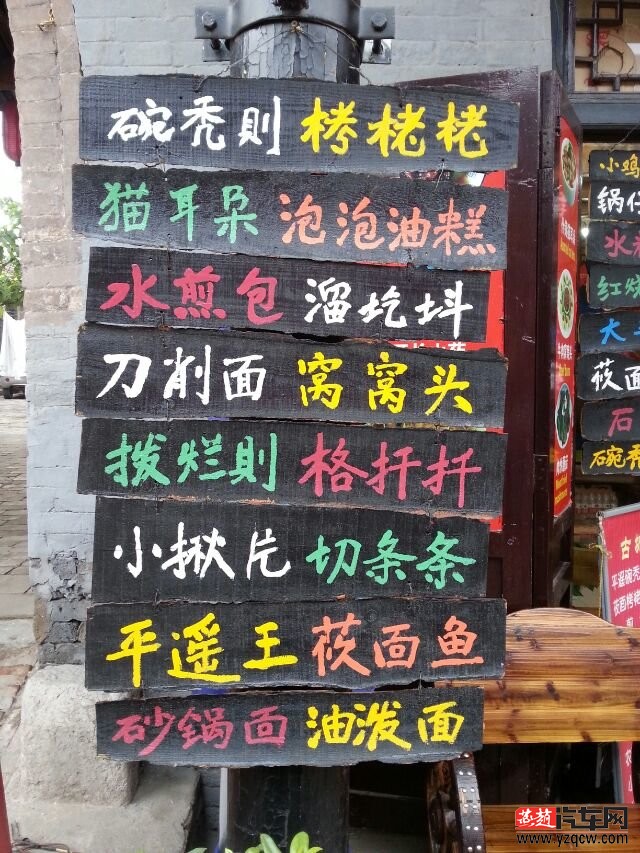 碗秃則 栲栳栳
猫耳朵 泡泡油糕
水煎包 溜圪抖
刀削面 窝窝头
拨烂则 格扦扦
小揪片 切条条
平遥王 莜面鱼
砂锅面 油泼面
小鸡
锅仔
水
红烧
大
莜面
石
碗秃
燕赵汽车网
www.yzqcw.com